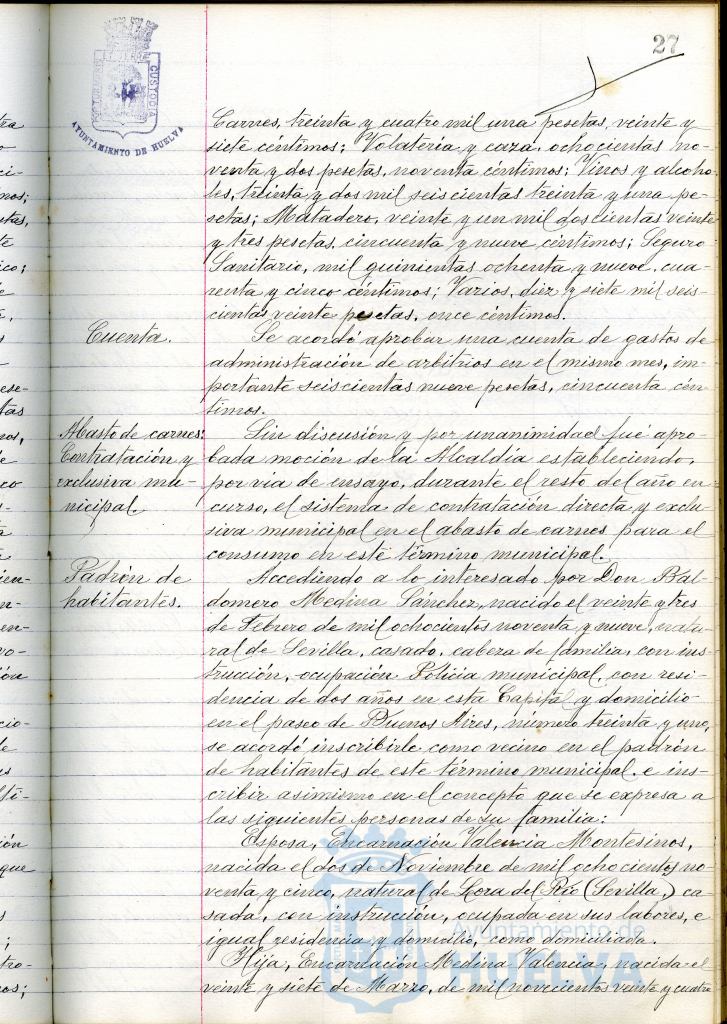 27
CUSTODIA
AYUNTAMIENTO DE HUELVA
Carnes, treinta y cuatro mil una pesetas, veinte y
siete céntimos; Volateria y caza, ochocientas no-
venta y dos pesetas, noventa céntimos; Vinos y alcoho-
les, treinta y dos mil seiscientas treinta y una pe-
setas; Matadero, veinte y un mil doscientas veinte
y tres pesetas, cincuenta y nueve céntimos; Seguro
Sanitario, mil quinientas ochenta y nueve, cua-
renta y cinco céntimos; Varios, diez y siete mil seis-
cientas veinte pesetas, once céntimos.
Cuenta.
Se acordó aprobar una cuenta de gastos de
administración de arbitrios en el mismo mes, im-
portante seiscientas nueve pesetas, cincuenta cén-
timos.
Abasto de carnes:
Contratación y
exclusiva mu-
nicipal.
Sin discusión y por unanimidad fué apro-
bada moción de la Alcaldía estableciendo,
por via de ensayo, durante el resto del año en
curso, el sistema de contratación directa y exclu-
siva municipal en el abasto de carnes para el
consumo en este término municipal.
Padrón de
habitantes.
Accediendo a lo interesado por Don Bal-
domero Medina Sánchez, nacido el veinte y tres
de Febrero de mil ochocientos noventa y nueve, natu-
ral de Sevilla, casado, cabeza de familia, con ins-
trucción, ocupación Policia municipal, con resi-
dencia de dos años en esta Capital y domicilio
en el paseo de Buenos Aires, número treinta y uno,
se acordó inscribirle como vecino en el padrón
de habitantes de este término municipal, e ins-
cribir asimismo en el concepto que se expresa a
las siguientes personas de su familia:
Esposa, Encarnación Valencia Montesinos,
nacida el dos de Noviembre de mil ochocientos no-
venta y cinco, natural de Lora del Rio (Sevilla,) ca-
sada, con instrucción, ocupada en sus labores, e
igual residencia y domicilio, como domiciliada.
Hija, Encarnación Medina Valencia, nacida el
veinte y siete de Marzo, de mil novecientos veinte y cuatro
Ayuntamiento de
HUELVA